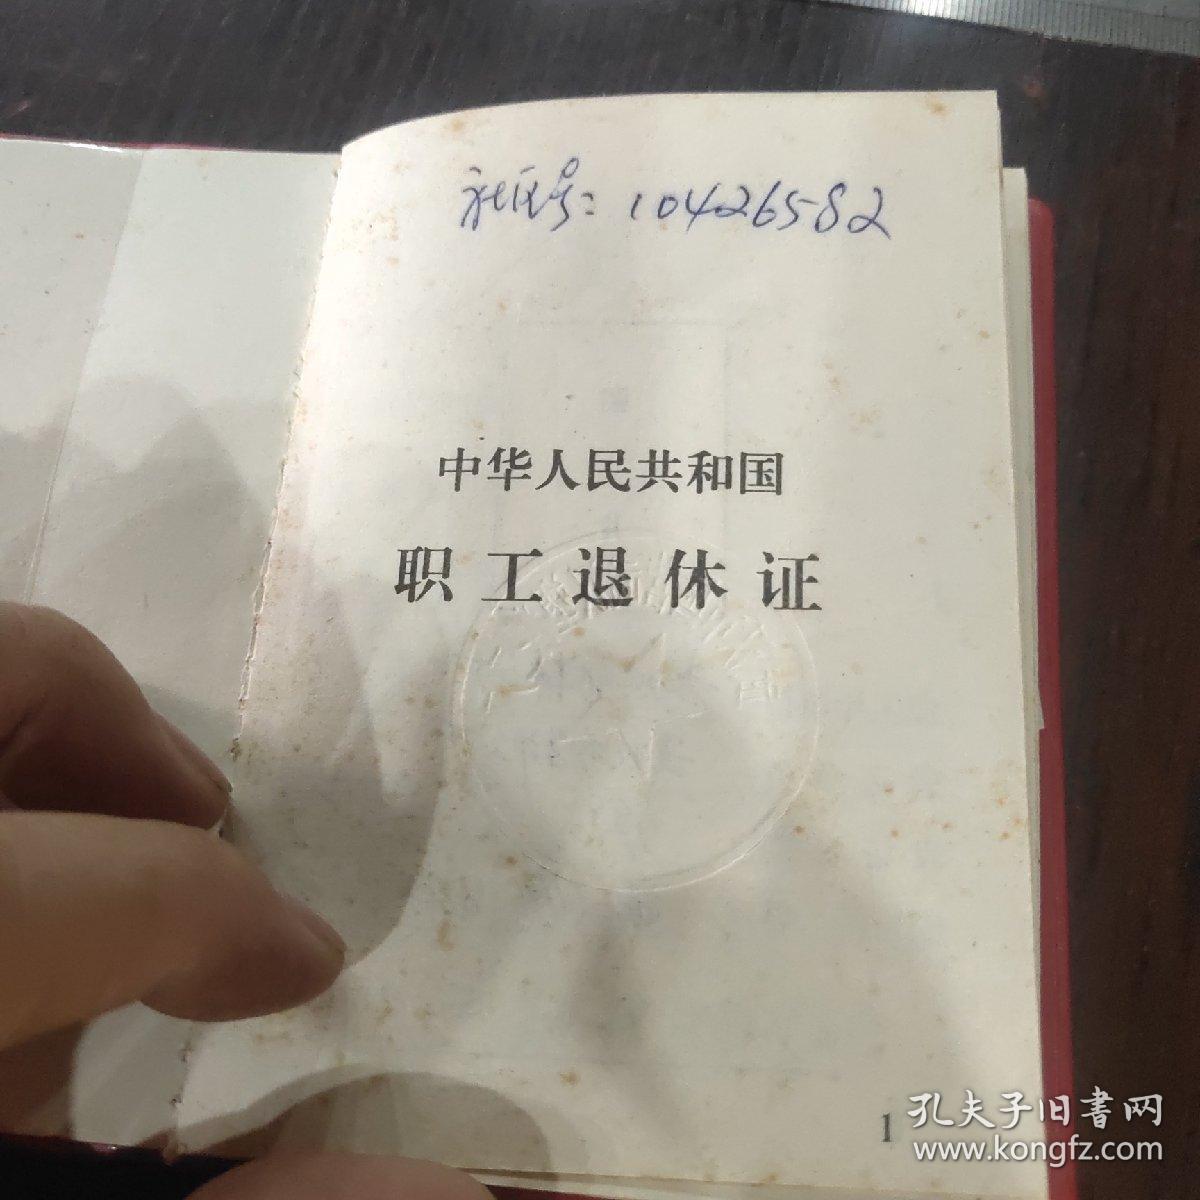 社保号：10426582
中华人民共和国
职工退休证
1
孔夫子旧書网
www.kongfz.com